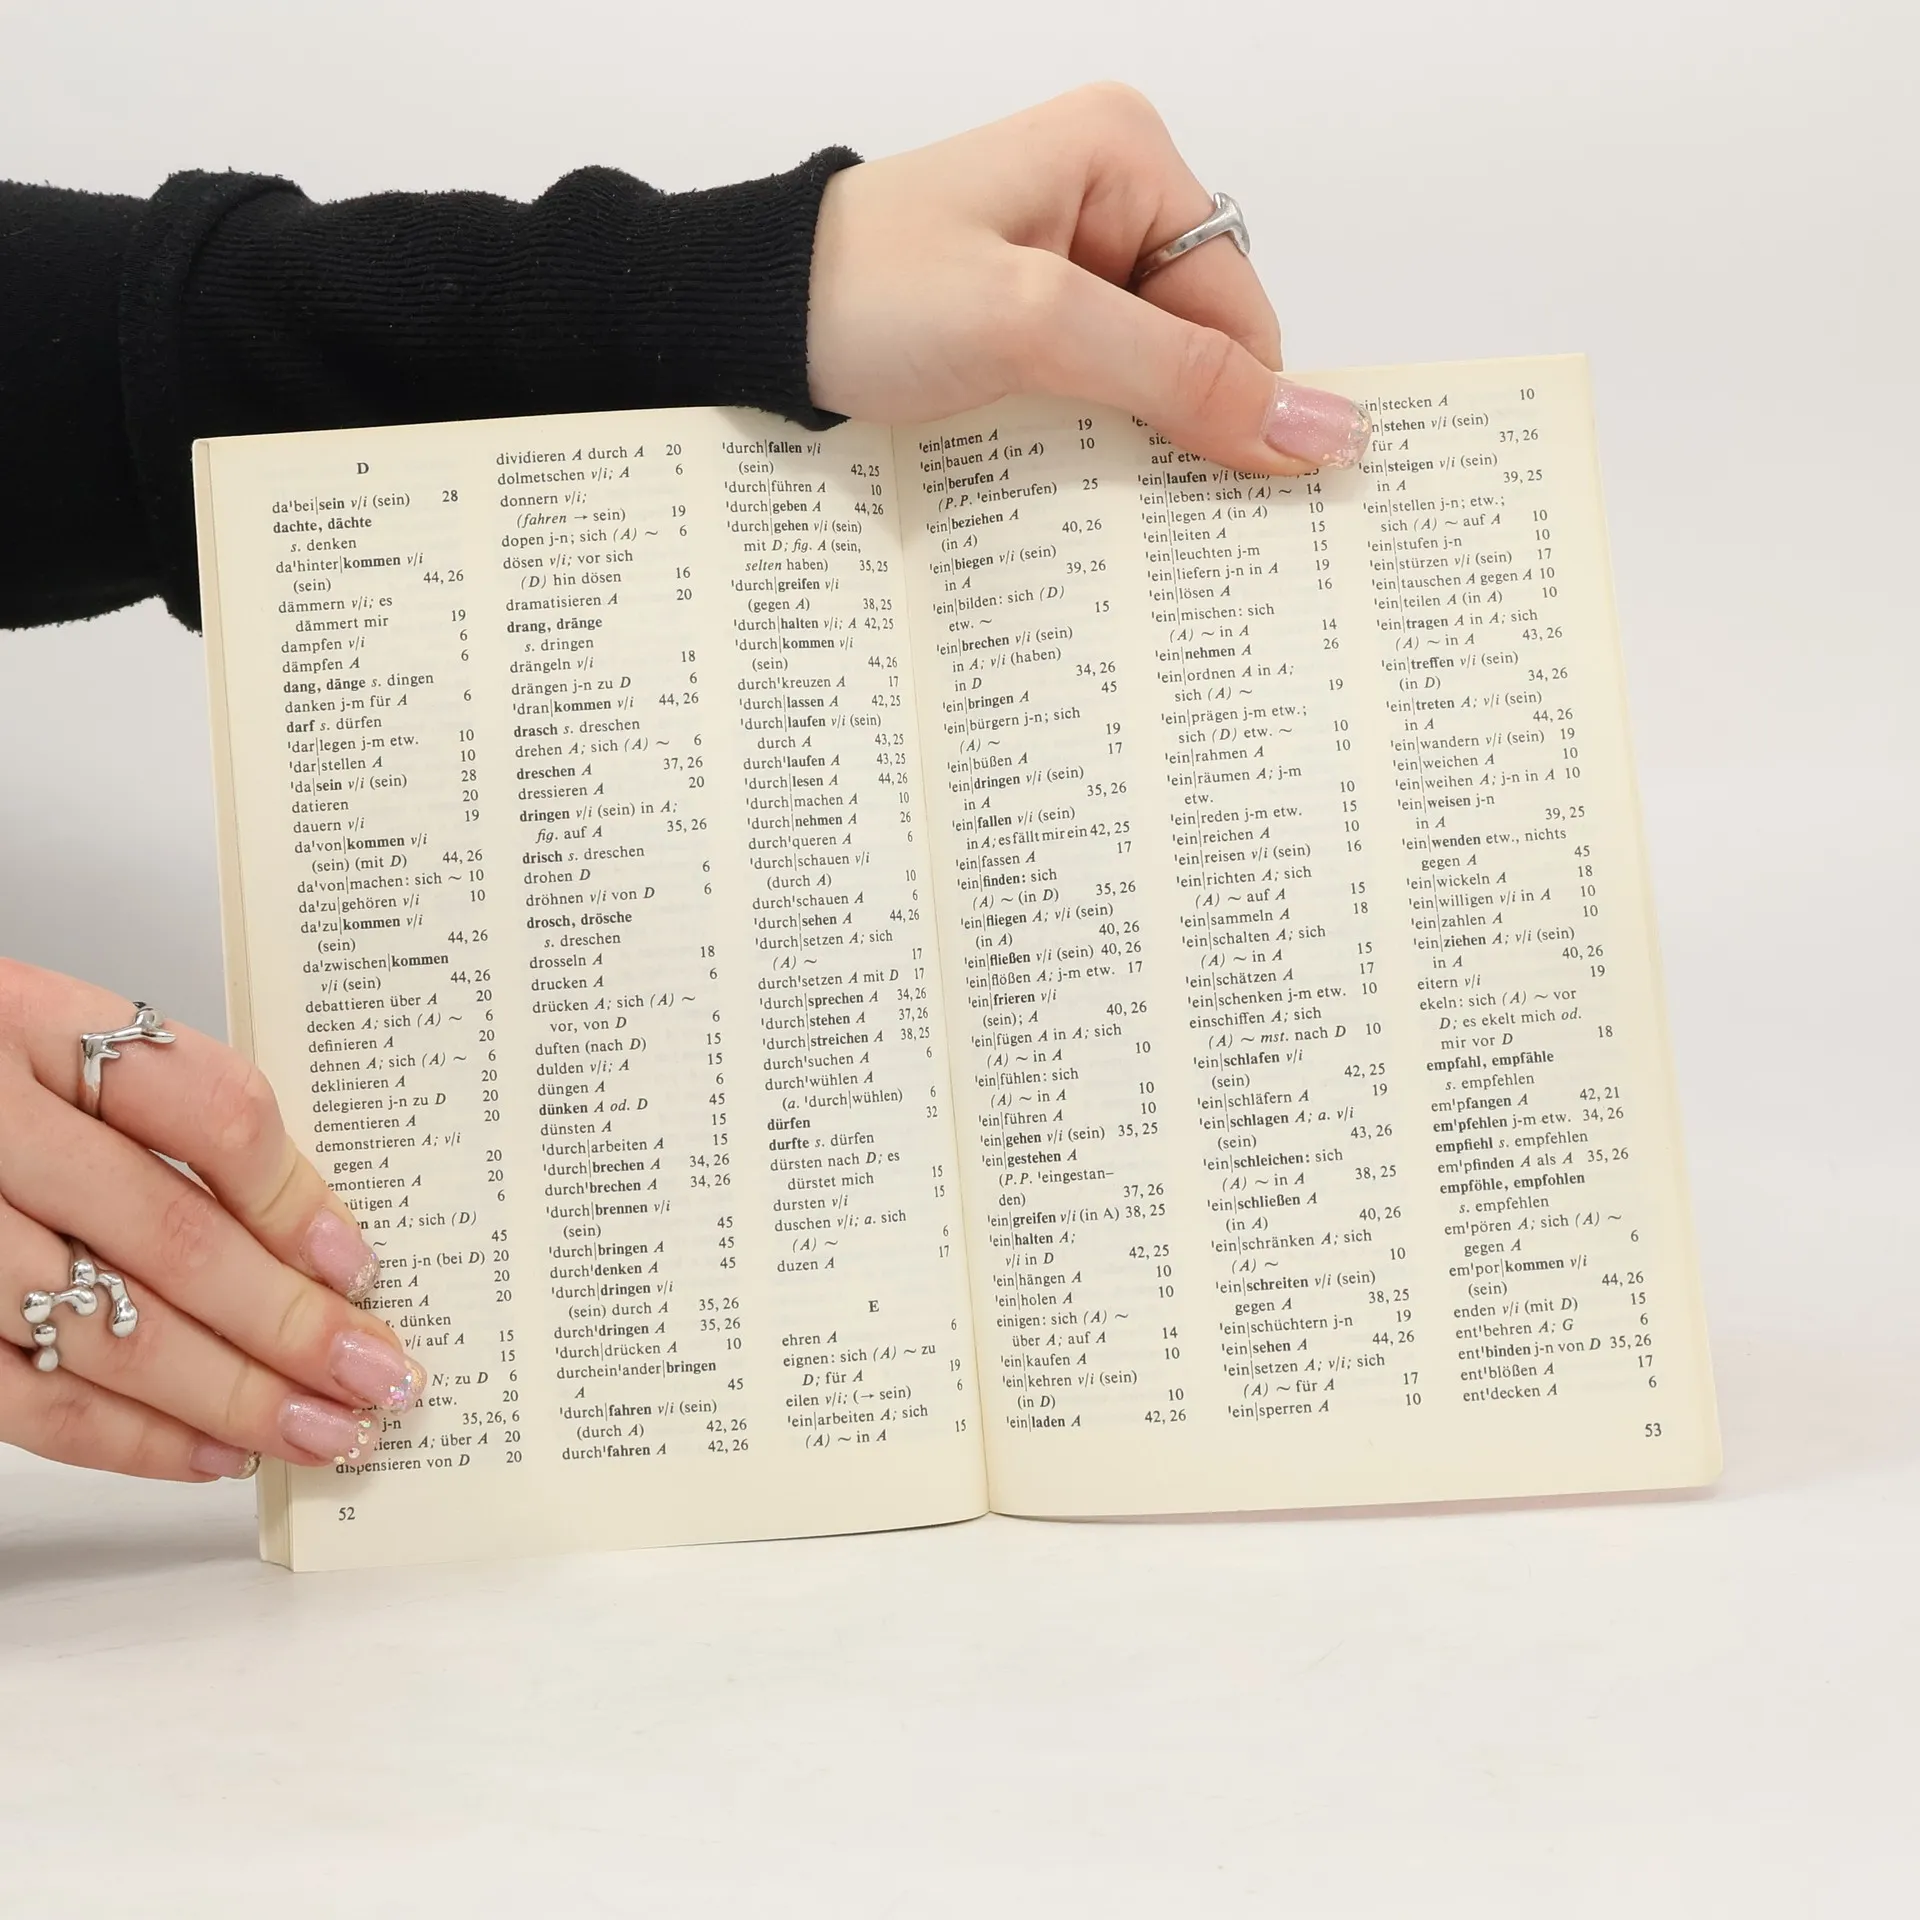 D
da'bei|sein v/i (sein) 28
dachte, dächte
s. denken
da'hinter|kommen v/i
(sein) 44, 26
dämmern v/i; es
dämmert mir 19
dampfen v/i 6
dämpfen A 6
dang, dänge s. dingen
danken j-m für A 6
darf s. dürfen
'dar|legen j-m etw. 10
'dar|stellen A 10
'da|sein v/i (sein) 28
datieren 20
dauern v/i 19
da'von|kommen v/i
(sein) (mit D) 44, 26
da'von|machen: sich ~ 10
da'zu|gehören v/i 10
da'zu|kommen v/i
(sein) 44, 26
da'zwischen|kommen
v/i (sein) 44, 26
debattieren über A 20
decken A; sich (A) ~ 6
definieren A 20
dehnen A; sich (A) ~ 6
deklinieren A 20
delegieren j-n zu D 20
dementieren A 20
demonstrieren A; v/i
gegen A 20
A 20
A 6
an A; sich (D)
~ 45
j-n (bei D) 20
A 20
A 20
s. dünken
v/i auf A 15
15
N; zu D 6
etw. 20
j-n 35, 26, 6
A; über A 20
dispensieren von D 20
52
dividieren A durch A 20
dolmetschen v/i; A 6
donnern v/i;
(fahren → sein) 19
dopen j-n; sich (A) ~ 6
dösen v/i; vor sich
(D) hin dösen 16
dramatisieren A 20
drang, dränge
s. dringen
drängeln v/i 18
drängen j-n zu D 6
'dran|kommen v/i 44, 26
drasch s. dreschen
drehen A; sich (A) ~ 6
dreschen A 37, 26
dressieren A 20
dringen v/i (sein) in A;
fig. auf A 35, 26
drisch s. dreschen
drohen D 6
dröhnen v/i von D 6
drosch, drösche
s. dreschen
drosseln A 18
drucken A 6
drücken A; sich (A) ~
vor, von D 6
duften (nach D) 15
dulden v/i; A 15
düngen A 6
dünken A od. D 45
dünsten A 15
'durch|arbeiten A 15
'durch|brechen A 34, 26
durch'brechen A 34, 26
'durch|brennen v/i
(sein) 45
'durch|bringen A 45
durch'denken A 45
'durch|dringen v/i
(sein) durch A 35, 26
durch'dringen A 35, 26
'durch|drücken A 10
durchein'ander|bringen
A 45
'durch|fahren v/i (sein)
(durch A) 42, 26
durch'fahren A 42, 26
'durch|fallen v/i
(sein) 42, 25
'durch|führen A 10
'durch|geben A 44, 26
'durch|gehen v/i (sein)
mit D; fig. A (sein,
selten haben) 35, 25
'durch|greifen v/i
(gegen A) 38, 25
'durch|halten v/i; A 42, 25
'durch|kommen v/i
(sein) 44, 26
durch'kreuzen A 17
'durch|lassen A 42, 25
'durch|laufen v/i (sein)
durch A 43, 25
durch'laufen A 43, 25
'durch|lesen A 44, 26
'durch|machen A 10
'durch|nehmen A 26
durch'queren A 6
'durch|schauen v/i
(durch A) 10
durch'schauen A 6
'durch|sehen A 44, 26
'durch|setzen A; sich
(A) ~ 17
durch'setzen A mit D 17
'durch|sprechen A 34, 26
'durch|stehen A 37, 26
'durch|streichen A 38, 25
durch'suchen A 6
durch'wühlen A
(a. 'durch|wühlen) 6
dürfen 32
durfte s. dürfen
dürsten nach D; es
dürstet mich 15
dursten v/i 15
duschen v/i; a. sich
(A) ~ 6
duzen A 17
E
ehren A 6
eignen: sich (A) ~ zu
D; für A 19
eilen v/i; (→ sein) 6
'ein|arbeiten A; sich
(A) ~ in A 15
'ein|atmen A 19
'ein|bauen A (in A) 10
'ein|berufen A
(P.P. 'einberufen) 25
'ein|beziehen A
(in A) 40, 26
'ein|biegen v/i (sein)
in A 39, 26
'ein|bilden: sich (D)
etw. ~ 15
'ein|brechen v/i (sein)
in A; v/i (haben)
in D 34, 26
'ein|bringen A 45
'ein|bürgern j-n; sich
(A) ~ 19
'ein|büßen A 17
'ein|dringen v/i (sein)
in A 35, 26
'ein|fallen v/i (sein)
in A; es fällt mir ein 42, 25
'ein|fassen A 17
'ein|finden: sich
(A) ~ (in D) 35, 26
'ein|fliegen A; v/i (sein)
(in A) 40, 26
'ein|fließen v/i (sein) 40, 26
'ein|flößen A; j-m etw. 17
'ein|frieren v/i
(sein); A 40, 26
'ein|fügen A in A; sich
(A) ~ in A 10
'ein|fühlen: sich
(A) ~ in A 10
'ein|führen A 10
'ein|gehen v/i (sein) 35, 25
'ein|gestehen A
(P.P. 'eingestan–
den) 37, 26
'ein|greifen v/i (in A) 38, 25
'ein|halten A;
v/i in D 42, 25
'ein|hängen A 10
'ein|holen A 10
einigen: sich (A) ~
über A; auf A 14
'ein|kaufen A 10
'ein|kehren v/i (sein)
(in D) 10
'ein|laden A 42, 26
auf etw.
'ein|laufen v/i
'ein|leben: sich (A) ~ 14
'ein|legen A (in A) 10
'ein|leiten A 15
'ein|leuchten j-m 15
'ein|liefern j-n in A 19
'ein|lösen A 16
'ein|mischen: sich
(A) ~ in A 14
'ein|nehmen A 26
'ein|ordnen A in A;
sich (A) ~ 19
'ein|prägen j-m etw.;
sich (D) etw. ~ 10
'ein|rahmen A 10
'ein|räumen A; j-m
etw. 10
'ein|reden j-m etw. 15
'ein|reichen A 10
'ein|reisen v/i (sein) 16
'ein|richten A; sich
(A) ~ auf A 15
'ein|sammeln A 18
'ein|schalten A; sich
(A) ~ in A 15
'ein|schätzen A 17
'ein|schenken j-m etw. 10
einschiffen A; sich
(A) ~ mst. nach D 10
'ein|schlafen v/i
(sein) 42, 25
'ein|schläfern A 19
'ein|schlagen A; a. v/i
(sein) 43, 26
'ein|schleichen: sich
(A) ~ in A 38, 25
'ein|schließen A
(in A) 40, 26
'ein|schränken A; sich
(A) ~ 10
'ein|schreiten v/i (sein)
gegen A 38, 25
'ein|schüchtern j-n 19
'ein|sehen A 44, 26
'ein|setzen A; v/i; sich
(A) ~ für A 17
'ein|sperren A 10
ein|stecken A 10
v/i (sein)
für A 37, 26
'ein|steigen v/i (sein)
in A 39, 25
'ein|stellen j-n; etw.;
sich (A) ~ auf A 10
'ein|stufen j-n 10
'ein|stürzen v/i (sein) 17
'ein|tauschen A gegen A 10
'ein|teilen A (in A) 10
'ein|tragen A in A; sich
(A) ~ in A 43, 26
'ein|treffen v/i (sein)
(in D) 34, 26
'ein|treten A; v/i (sein)
in A 44, 26
'ein|wandern v/i (sein) 19
'ein|weichen A 10
'ein|weihen A; j-n in A 10
'ein|weisen j-n
in A 39, 25
'ein|wenden etw., nichts
gegen A 45
'ein|wickeln A 18
'ein|willigen v/i in A 10
'ein|zahlen A 10
'ein|ziehen A; v/i (sein)
in A 40, 26
eitern v/i 19
ekeln: sich (A) ~ vor
D; es ekelt mich od.
mir vor D 18
empfahl, empfähle
s. empfehlen
em'pfangen A 42, 21
em'pfehlen j-m etw. 34, 26
empfiehl s. empfehlen
em'pfinden A als A 35, 26
empföhle, empfohlen
s. empfehlen
em'pören A; sich (A) ~
gegen A 6
em'por|kommen v/i
(sein) 44, 26
enden v/i (mit D) 15
ent'behren A; G 6
ent'binden j-n von D 35, 26
ent'blößen A 17
ent'decken A 6
53